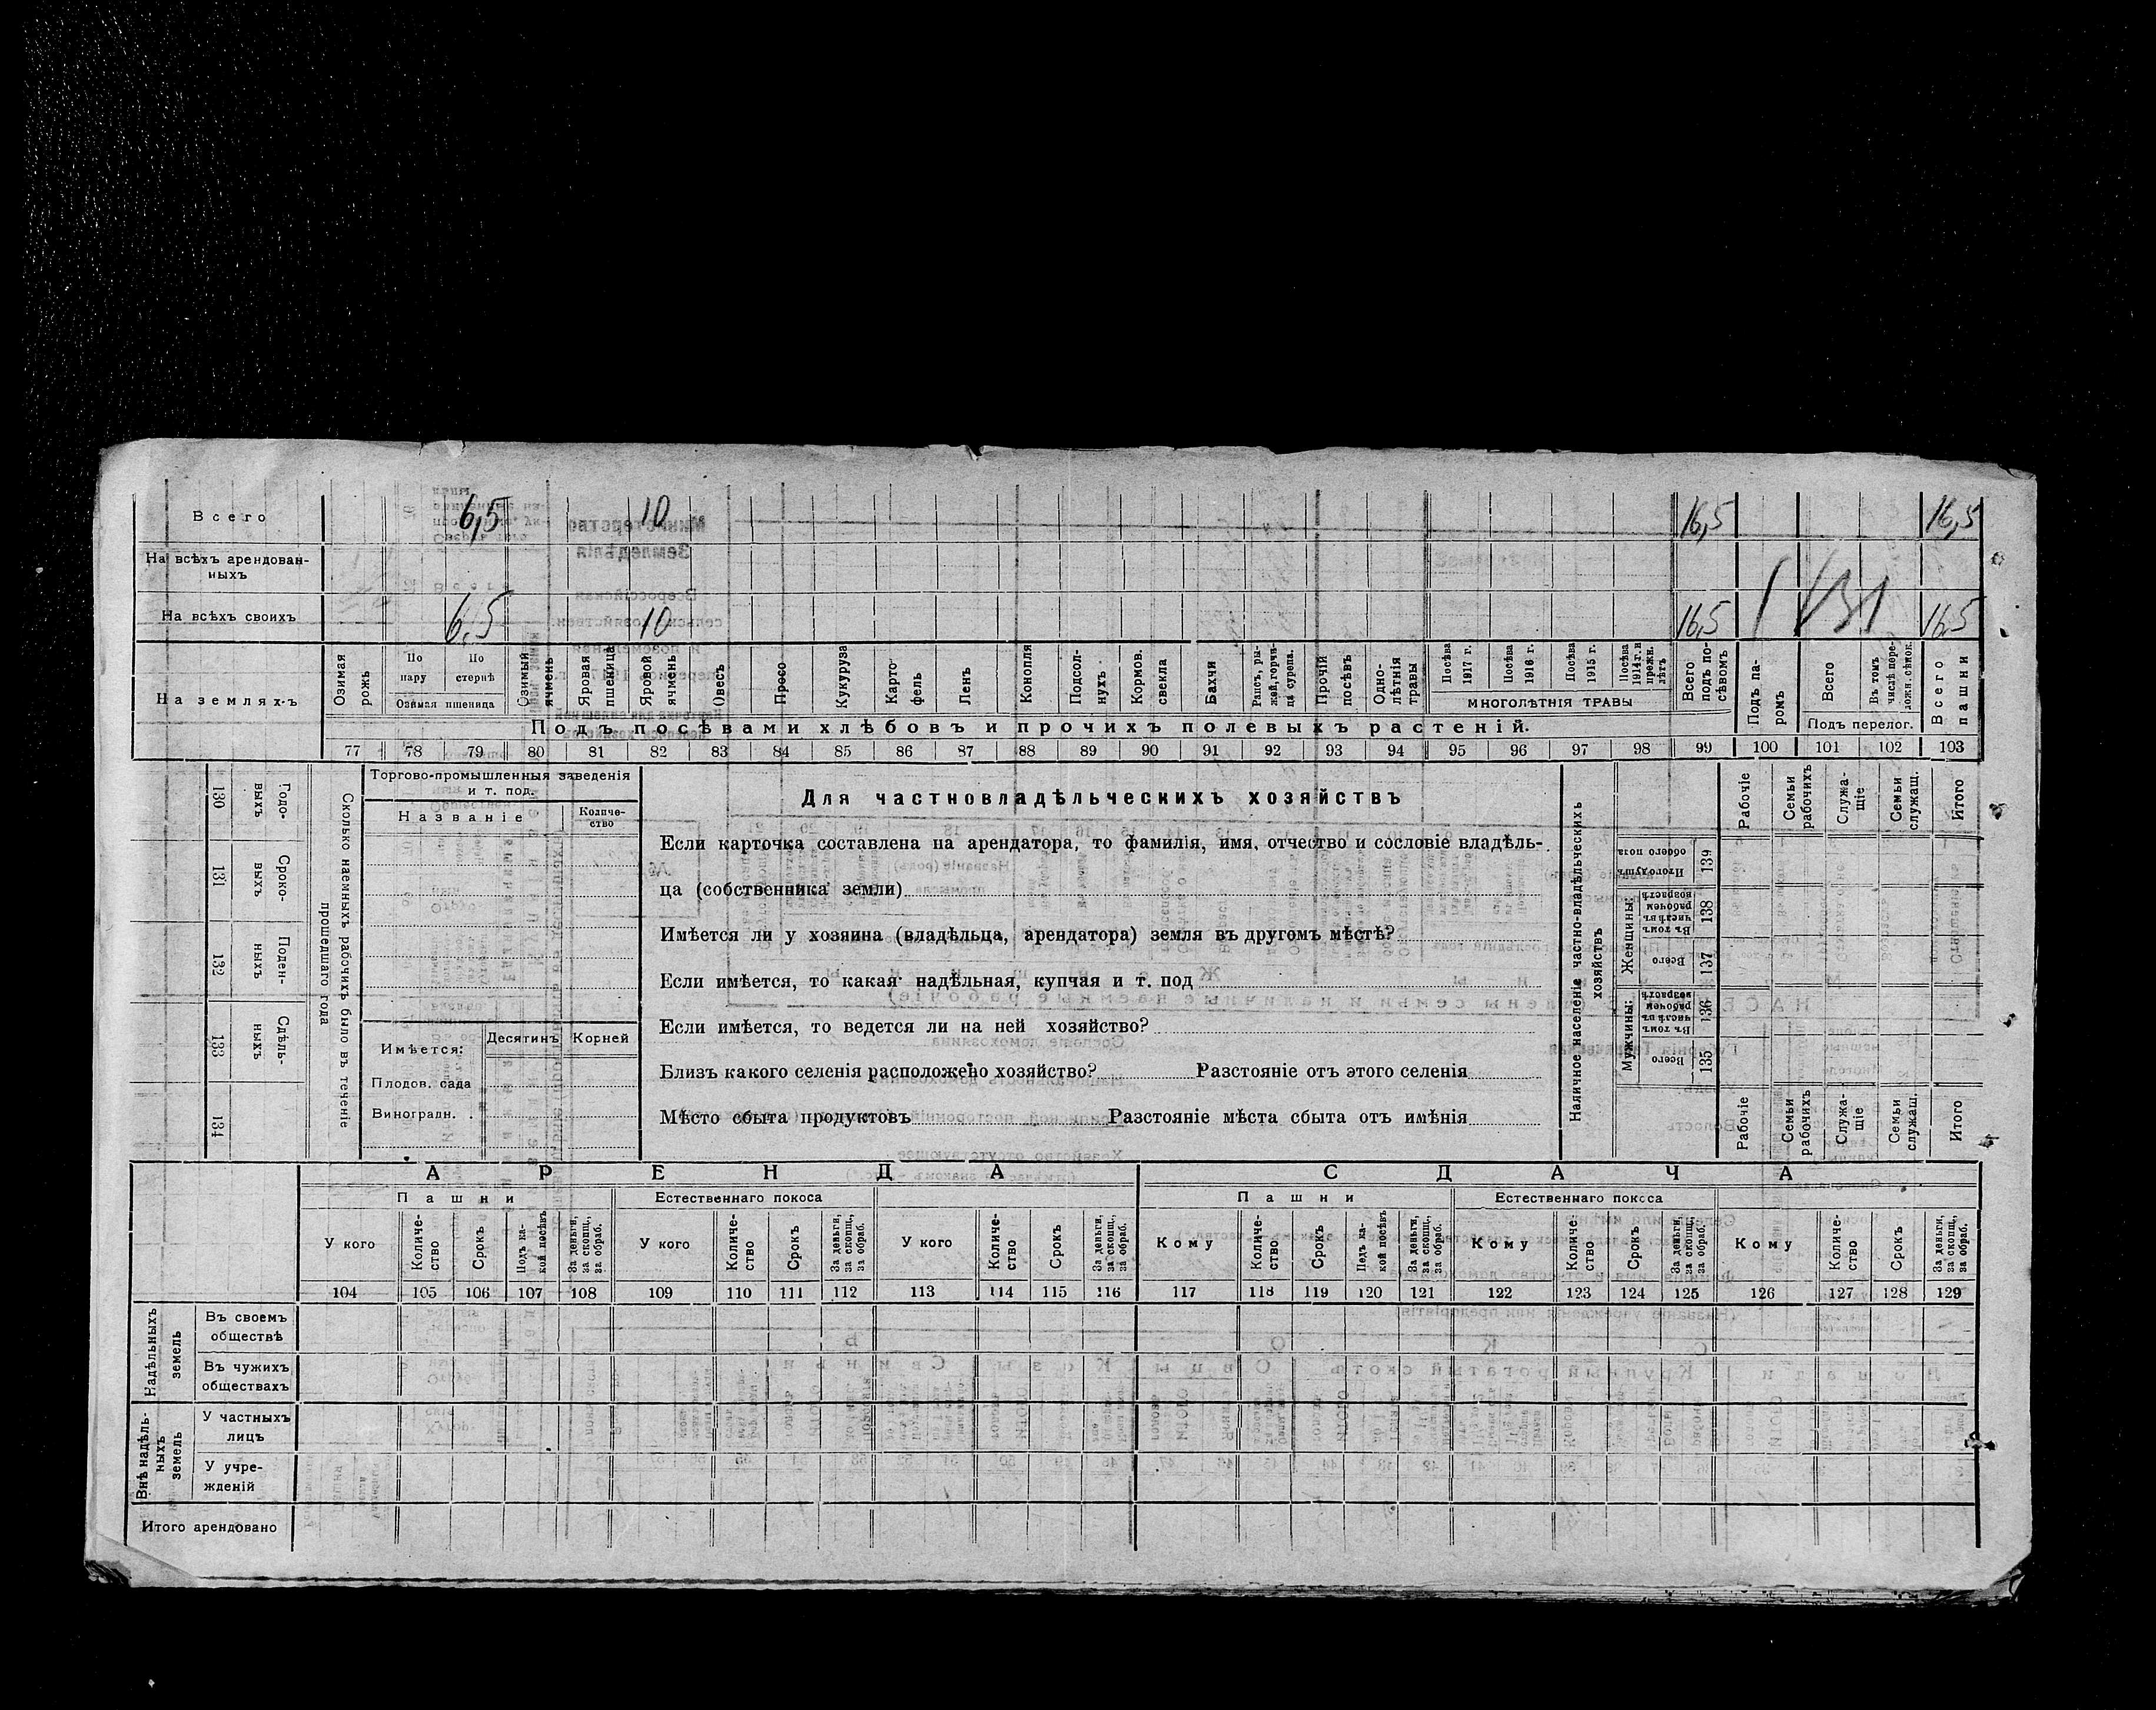 Всего 6,5 10 16,5 16,5
На всѣхъ арендован-
ныхъ
На всѣхъ своихъ 6,5 10 16,5 16,5
На земляхъ
Озимая рожь
По пару
По стернѣ
Озимая пшеница
Озимый ячмень
Яровая пшеница
Яровой ячмень
Овесъ
Просо
Кукуруза
Карто-
фель
Ленъ
Конопля
Подсол-
нухъ
Кормов. свекла
Бахчи
Рапсъ, ры-
жей, горчи-
ца сурепа.
Прочій посѣвъ
Одно-
лѣтнія травы
Посѣва 1917 г.
Посѣва 1916 г.
Посѣва 1915 г.
Посѣва 1914 г. и прежн. лѣтъ
МНОГОЛѢТНІЯ ТРАВЫ
Всего подъ по-
сѣвомъ
Подъ па-
ромъ
Всего
Въ томъ числѣ пере-
ложн. сѣнок.
Подъ перелог.
Всего пашни
Подъ посѣвами хлѣбовъ и прочихъ полевыхъ растеній.
77 78 79 80 81 82 83 84 85 86 87 88 89 90 91 92 93 94 95 96 97 98 99 100 101 102 103
130 Годо-
выхъ
131 Сроко-
выхъ
132 Поден-
ныхъ
133 Сдѣль-
ныхъ
134
Сколько наемныхъ рабочихъ было въ теченіе
прошедшаго года
Торгово-промышленныя заведенія
и т. под.
Названіе
Количе-
ство
Имѣется: Десятинъ Корней
Плодов. сада
Виноградн.
Для частновладѣльческихъ хозяйствъ
Если карточка составлена на арендатора, то фамилія, имя, отчество и сословіе владѣль-
ца (собственника земли)
Имѣется ли у хозяина (владѣльца, арендатора) земля въ другомъ мѣстѣ?
Если имѣется, то какая надѣльная, купчая и т. под
Если имѣется, то ведется ли на ней хозяйство?
Близъ какого селенія расположено хозяйство? Разстояніе отъ этого селенія
Мѣсто сбыта продуктовъ Разстояніе мѣста сбыта отъ имѣнія
Наличное населеніе частно-владѣльческихъ
хозяйствъ
Мужчины:
Женщины:
Всего 135
Въ томъ числѣ въ рабочемъ возрастѣ 136
Всего 137
Въ томъ числѣ въ рабочемъ возрастѣ 138
Итого душъ обоего пола 139
Рабочіе
Семьи рабочихъ
Служа-
щіе
Семьи служащ.
Итого
Рабочіе
Семьи рабочихъ
Служа-
щіе
Семьи служащ.
Итого
АРЕНДА СДАЧА
Пашни Естественнаго покоса Пашни Естественнаго покоса
У кого
Количе-
ство
Срокъ
Подъ ка-
кой посѣвъ
За деньги, за скопщ., за обраб.
У кого
Количе-
ство
Срокъ
За деньги, за скопщ., за обраб.
У кого
Количе-
ство
Срокъ
За деньги, за скопщ., за обраб.
Кому
Количе-
ство
Срокъ
Подъ ка-
кой посѣвъ
За деньги, за скопщ., за обраб.
Кому
Количе-
ство
Срокъ
За деньги, за скопщ., за обраб.
Кому
Количе-
ство
Срокъ
За деньги, за скопщ., за обраб.
104 105 106 107 108 109 110 111 112 113 114 115 116 117 118 119 120 121 122 123 124 125 126 127 128 129
Надѣльныхъ
земель
Въ своемъ
обществѣ
Въ чужихъ
обществахъ
Внѣ надѣль-
ныхъ
земель
У частныхъ
лицъ
У учре-
жденій
Итого арендовано